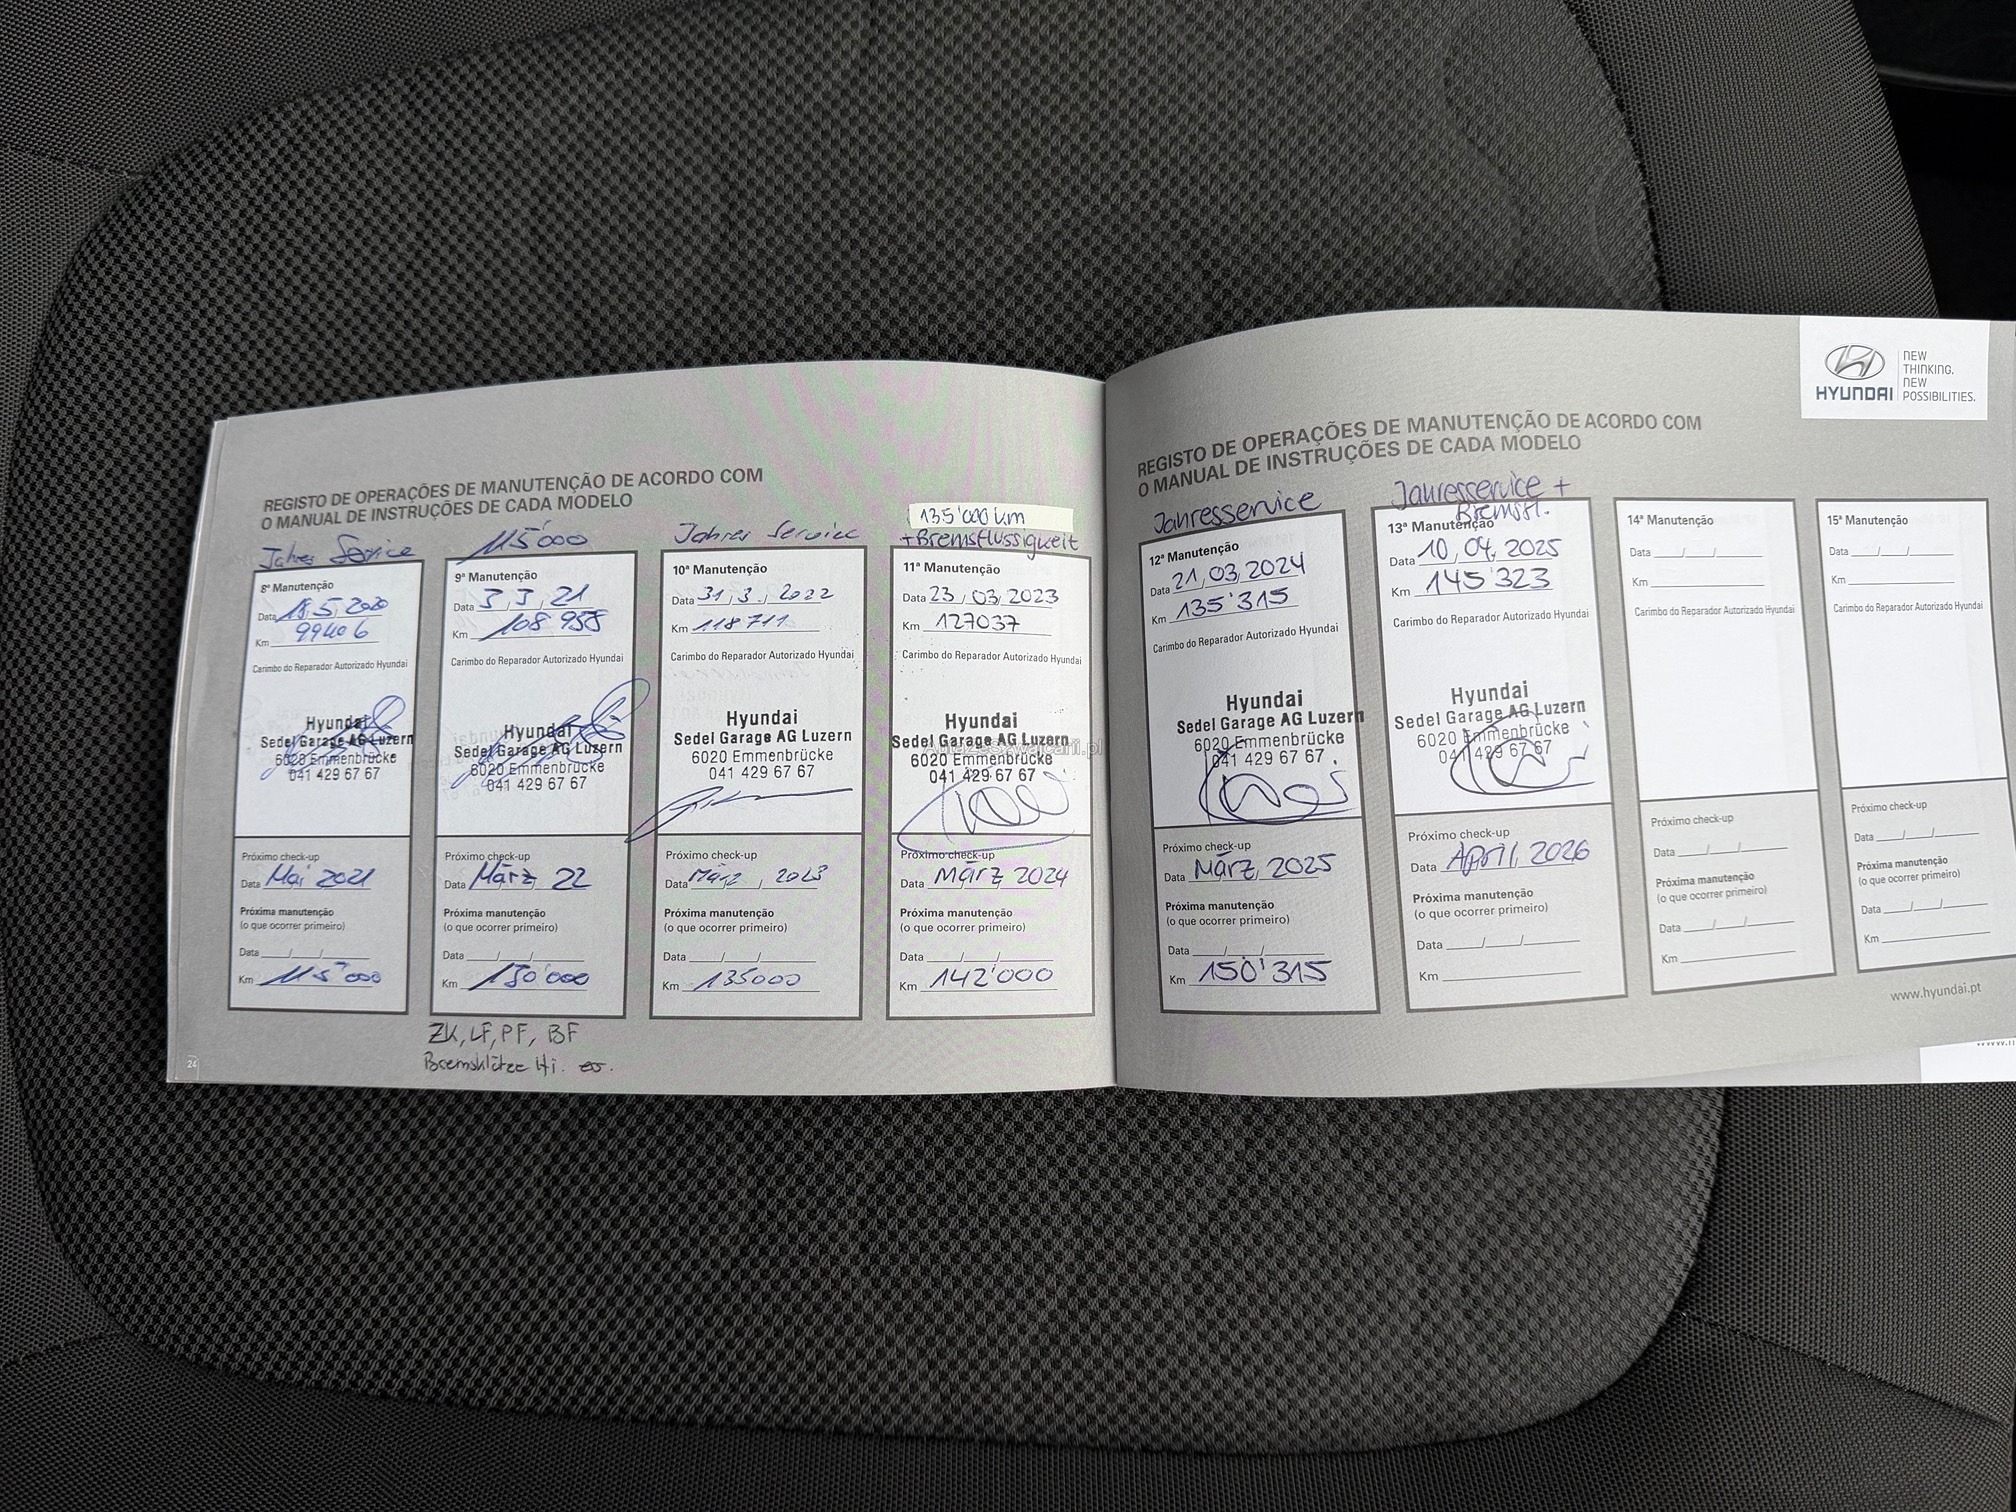 REGISTO DE OPERAÇÕES DE MANUTENÇÃO DE ACORDO COM
O MANUAL DE INSTRUÇÕES DE CADA MODELO
Jahres Service
8ª Manutenção
Data 18.5.2020
Km 99406
Carimbo do Reparador Autorizado Hyundai
Hyundai
Sedel Garage AG Luzern
6020 Emmenbrücke
041 429 67 67
Próximo check-up
Data Mai 2021
Próxima manutenção
(o que ocorrer primeiro)
Data __/__/__
Km 115'000
115'000
9ª Manutenção
Data 3, 3, 21
Km 108'958
Carimbo do Reparador Autorizado Hyundai
Hyundai
Sedel Garage AG Luzern
6020 Emmenbrücke
041 429 67 67
Próximo check-up
Data März 22
Próxima manutenção
(o que ocorrer primeiro)
Data __/__/__
Km 130'000
ZK, LF, PF, BF
Bremsklötze Hi. es.
Jahres Service
10ª Manutenção
Data 31, 3, 2022
Km 118711
Carimbo do Reparador Autorizado Hyundai
Hyundai
Sedel Garage AG Luzern
6020 Emmenbrücke
041 429 67 67
Próximo check-up
Data März, 2023
Próxima manutenção
(o que ocorrer primeiro)
Data __/__/__
Km 135000
135'000 km
+Bremsflüssigkeit
11ª Manutenção
Data 23, 03, 2023
Km 127037
Carimbo do Reparador Autorizado Hyundai
Hyundai
Sedel Garage AG Luzern
6020 Emmenbrücke
041 429 67 67
Próximo check-up
Data März 2024
Próxima manutenção
(o que ocorrer primeiro)
Data __/__/__
Km 142'000
24
HYUNDAI
NEW
THINKING.
NEW
POSSIBILITIES.
REGISTO DE OPERAÇÕES DE MANUTENÇÃO DE ACORDO COM
O MANUAL DE INSTRUÇÕES DE CADA MODELO
Jahresservice
12ª Manutenção
Data 21, 03, 2024
Km 135'315
Carimbo do Reparador Autorizado Hyundai
Hyundai
Sedel Garage AG Luzern
6020 Emmenbrücke
041 429 67 67
Próximo check-up
Data März, 2025
Próxima manutenção
(o que ocorrer primeiro)
Data __/__/__
Km 150'315
Jahresservice +
Bremsfl.
13ª Manutenção
Data 10, 04, 2025
Km 145'323
Carimbo do Reparador Autorizado Hyundai
Hyundai
Sedel Garage AG Luzern
6020 Emmenbrücke
041 429 67 67
Próximo check-up
Data April, 2026
Próxima manutenção
(o que ocorrer primeiro)
Data __/__/__
Km
14ª Manutenção
Data __/__/__
Km
Carimbo do Reparador Autorizado Hyundai
Próximo check-up
Data __/__/__
Próxima manutenção
(o que ocorrer primeiro)
Data __/__/__
Km
15ª Manutenção
Data __/__/__
Km
Carimbo do Reparador Autorizado Hyundai
Próximo check-up
Data __/__/__
Próxima manutenção
(o que ocorrer primeiro)
Data __/__/__
Km
www.hyundai.pt